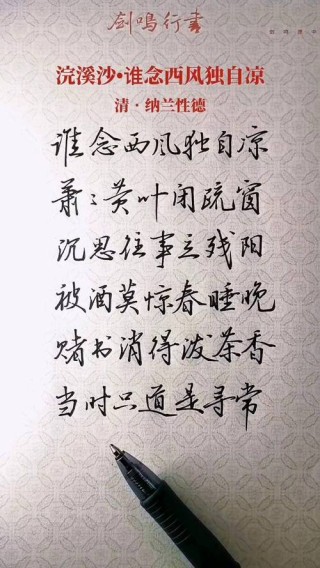 剑鸣行书
剑鸣行书
浣溪沙•谁念西风独自凉
清·纳兰性德
谁念西风独自凉
萧萧黄叶闭疏窗
沉思往事立残阳
被酒莫惊春睡晚
赌书消得泼茶香
当时只道是寻常